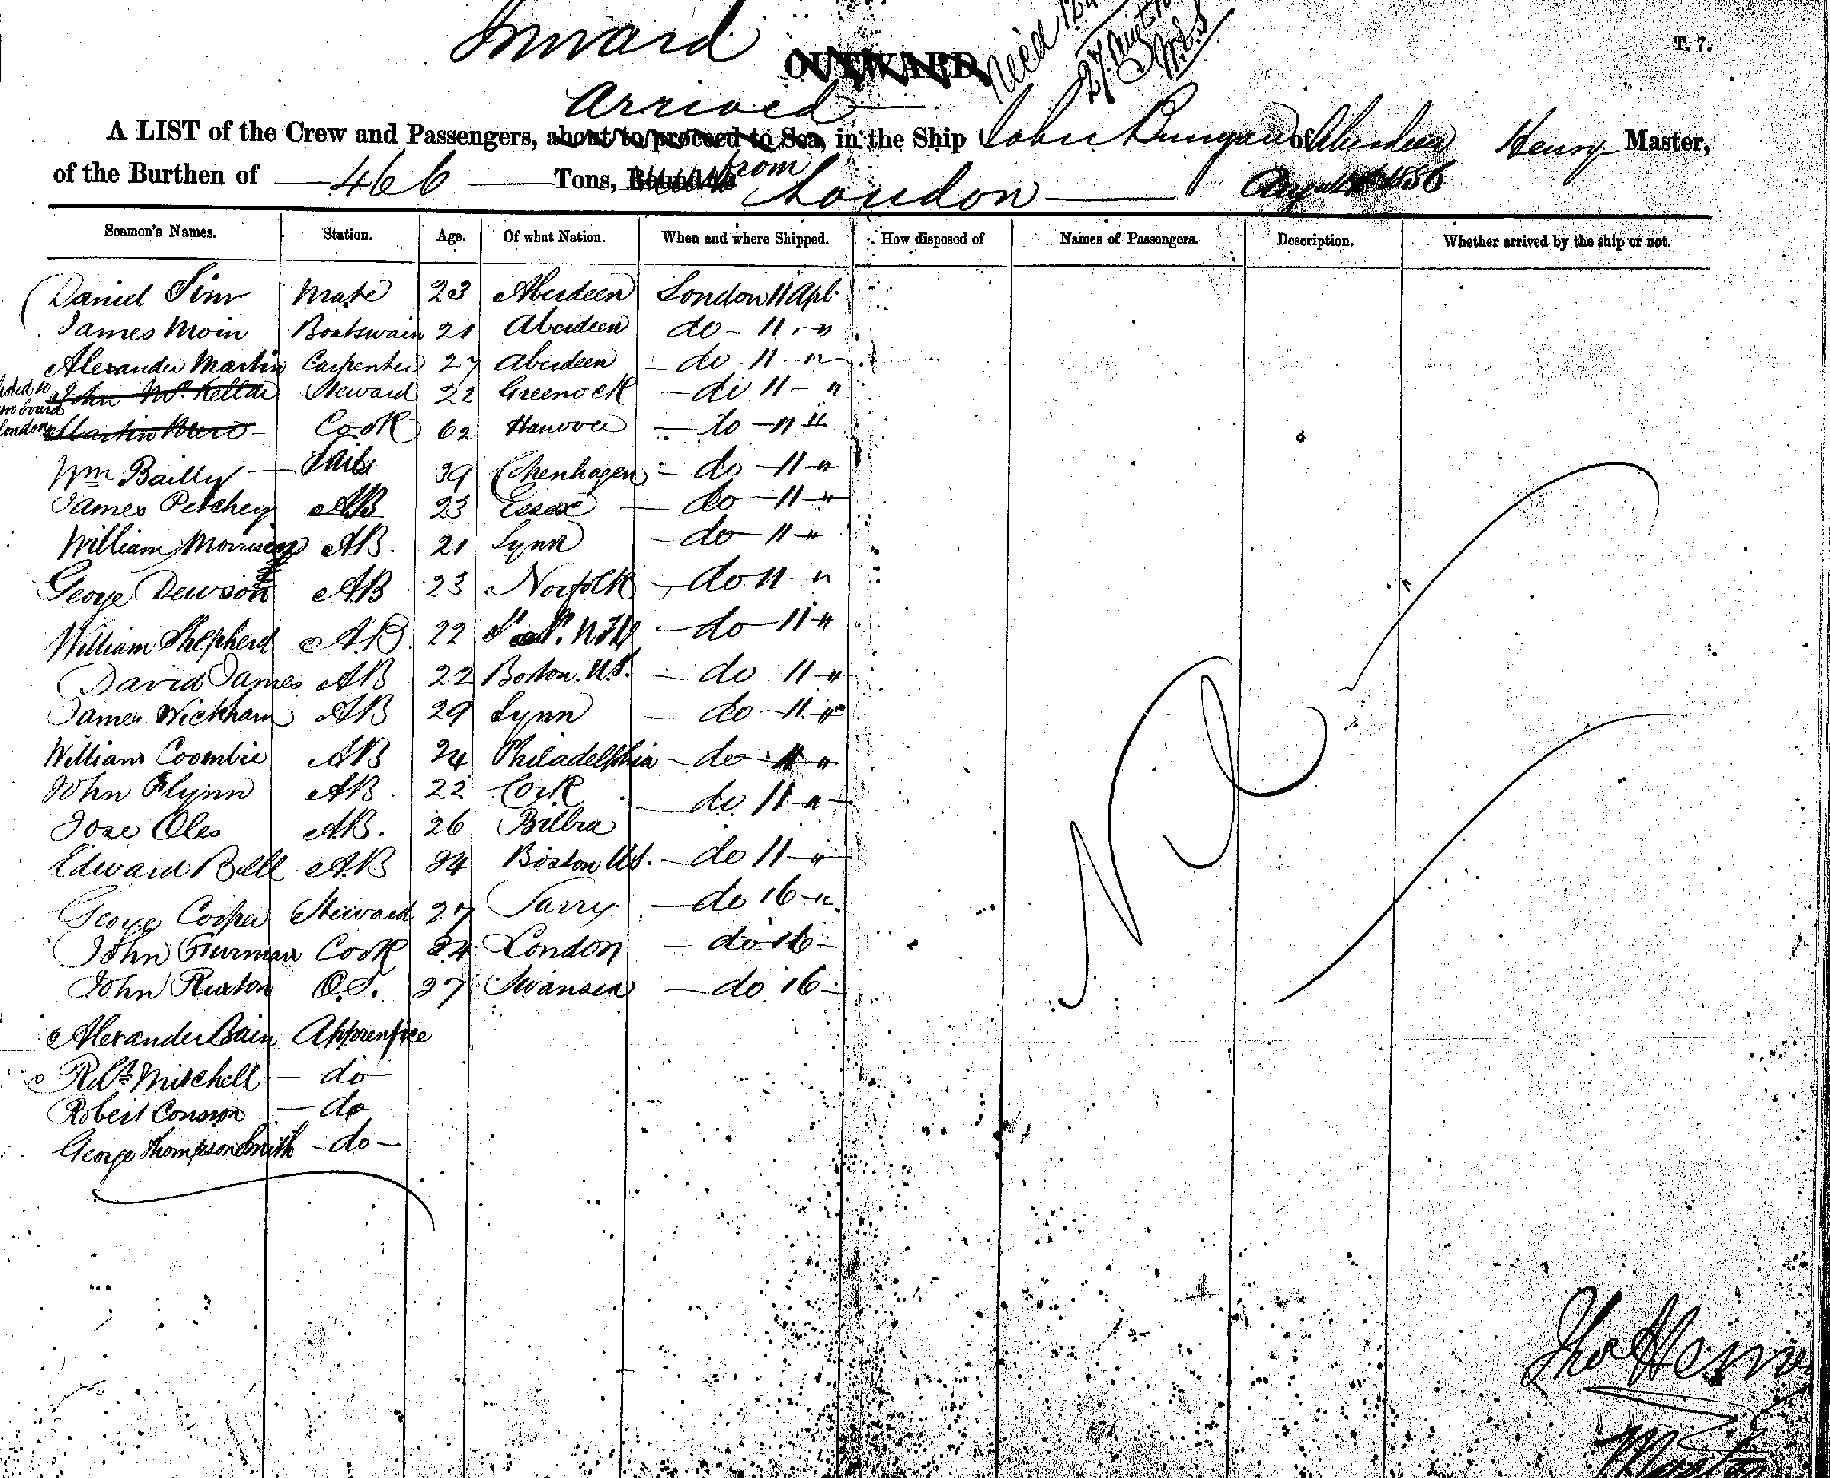 Inward
OUTWARD
T. 7.
27 Augt
Arrived
A LIST of the Crew and Passengers, about to proceed to Sea, in the Ship John Bunyan of Aberdeen Henry Master,
of the Burthen of 466 Tons, from London August 1856
Seamen's Names. Station. Age. Of what Nation. When and where Shipped. How disposed of Names of Passengers. Description. Whether arrived by the ship or not.
Daniel Sim Mate 23 Aberdeen London 11 Apl
James Moir Boatswain 21 Aberdeen do - 11 - "
Alexander Martin Carpenter 27 Aberdeen - do 11 - " -
John McKellar Steward 22 Greenock - do 11 - "
London Martin Cook 62 Hanover - do - 11 "
Wm Bailly - Sails 39 Copenhagen - do - 11 - "
James Petchey AB 23 Essex - do - 11 - "
William Morrison AB. 21 Lynn - do - 11 - "
George Dewson AB 23 Norfolk - do 11 - "
William Shepherd AB. 22 - do - 11 - "
David James AB 22 Boston. U.S. - do 11 - "
James Wickham AB 29 Lynn - do - 11 - "
William Coombie AB 24 Philadelphia - do - 11 "
John Flynn AB. 22 Cork - do 11 - " -
Jose Oles AB. 26 Bilbia
Edward Bell AB 24 Boston US. - do 11 - "
George Cooper Steward 27 - do 16 - "
John Furman Cook 24 London - do 16 -
John Ruxton O.S. 27 Swansea - do 16 -
Alexander Bain Apprentice
Robt Mitchell - do -
Robert - do
George Thompson Smith - do -
Thos Henry
Master